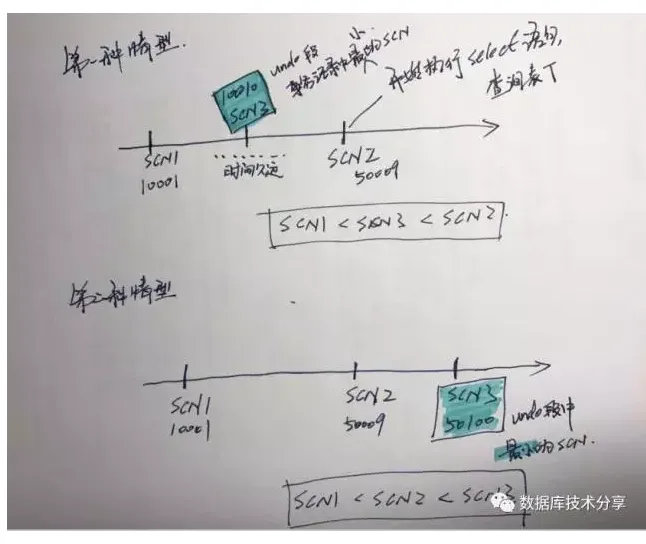 第一种情型.
小
undo段
事务记录中最的SCN
10010
SCN3
开始执行select语句,
查询表T
SCN1
10001
时间久远
SCN2
50009
SCN1 < SCN3 < SCN2.
第二种情型
SCN1
10001
SCN2
50009
SCN3
50100
undo段中
最小的SCN.
SCN1 < SCN2 < SCN3
数据库技术分享